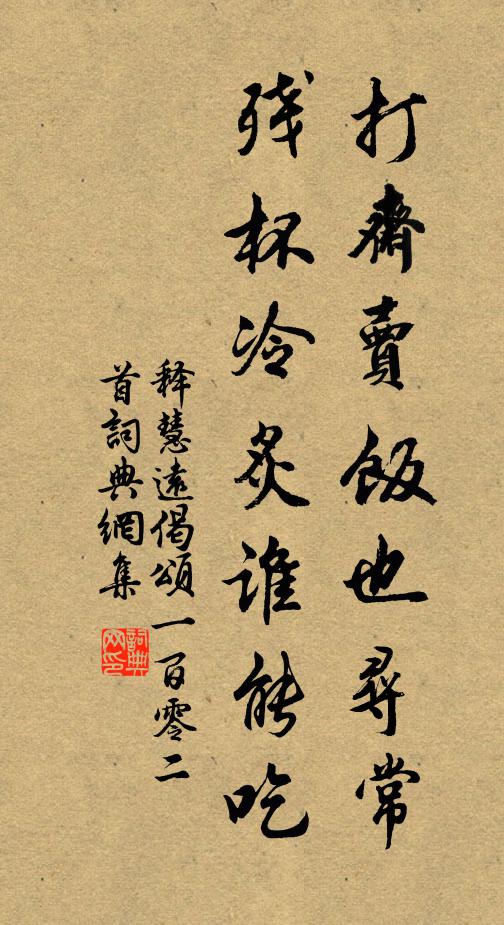 打齋賣飯也尋常
残杯冷炙誰能吃
释慧遠偈頌一百零二
首詞典網集
詞典网印